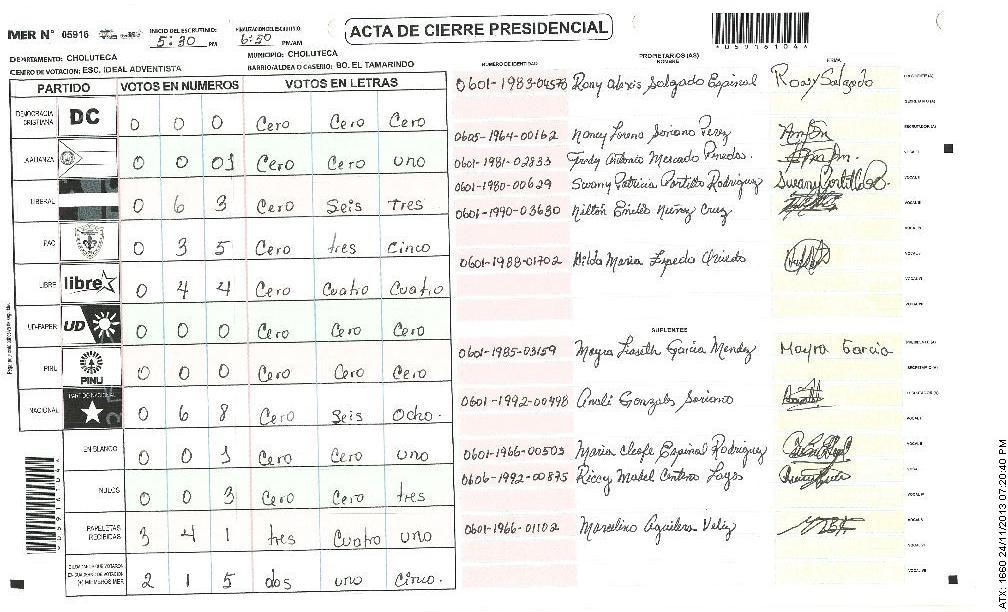 ACTA DE CIERRE PRESIDENCIAL
MER N° 05916
INICIO DEL ESCRUTINIO: 5:30 PM
FINALIZACION DEL ESCRUTINIO 6:50 PM/AM
*05916104*
DEPARTAMENTO: CHOLUTECA
MUNICIPIO: CHOLUTECA
CENTRO DE VOTACION: ESC. IDEAL ADVENTISTA
BARRIO/ALDEA O CASERIO: BO. EL TAMARINDO
PARTIDO VOTOS EN NUMEROS VOTOS EN LETRAS
DEMOCRACIA CRISTIANA DC 0 0 0 Cero Cero Cero
ALIANZA 0 0 01 Cero Cero uno
LIBERAL 0 6 3 Cero Seis Tres
PAC 0 3 5 Cero tres Cinco
LIBRE libre 0 4 4 Cero Cuatro Cuatro
UD-FAPER UD 0 0 0 Cero Cero Cero
PINU PINU 0 0 0 Cero Cero Cero
NACIONAL PARTIDO NACIONAL 0 6 8 Cero Seis Ocho.
EN BLANCO 0 0 1 Cero Cero uno
NULOS 0 0 3 Cero Cero tres
PAPELETAS RECIBIDAS 3 4 1 tres Cuatro uno
2 1 5 dos uno Cinco.
NUMERO DE IDENTIDAD PROPIETARIOS (AS) NOMBRE FIRMA
0601-1983-04578 Rony Alexis Salgado Espinal Rony Salgado
0605-1964-00162 Nancy Lorena Soriano Perez
0601-1981-02833 Fredy Antonio Mercado Pinedas.
0601-1980-00629 Swamy Patricia Portillo Rodriguez Swamy Portillo R.
0601-1990-03630 Nuñez Cruz
0601-1988-01702 Hilda Maria
SUPLENTES
0601-1985-03159 Mayra Lisseth Garcia Mendez Mayra Garcia
0601-1992-00498 Anali Gonzales Soriano
0601-1966-00503 Maria Cleofe Espinal Rodriguez
0606-1992-00875 Riccy Mabel Centeno Lagos
0601-1966-01102 Marcelino Aguilera Veliz
ATX: 1660 24/11/2013 07:20:40 PM